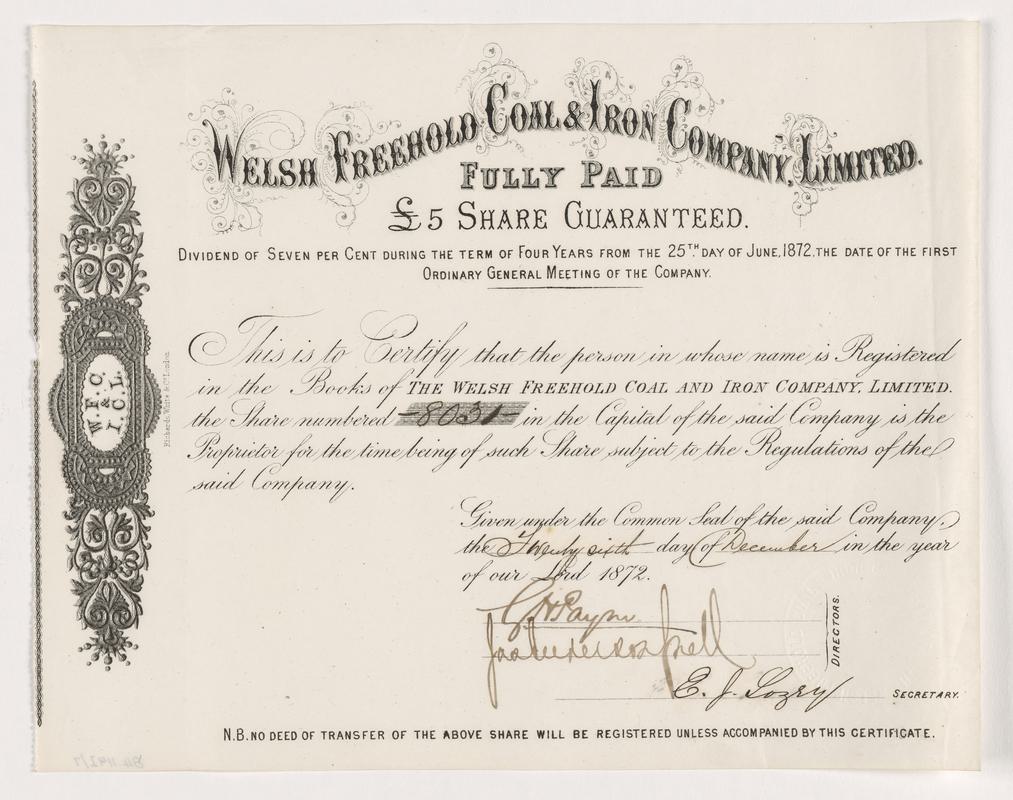 WELSH FREEHOLD COAL & IRON COMPANY, LIMITED.
FULLY PAID
£5 SHARE GUARANTEED.
DIVIDEND OF SEVEN PER CENT DURING THE TERM OF FOUR YEARS FROM THE 25TH. DAY OF JUNE, 1872, THE DATE OF THE FIRST
ORDINARY GENERAL MEETING OF THE COMPANY.
This is to Certify that the person in whose name is Registered
in the Books of THE WELSH FREEHOLD COAL AND IRON COMPANY, LIMITED.
the Share numbered —8031— in the Capital of the said Company is the
Proprietor for the time being of such Share subject to the Regulations of the
said Company.
Given under the Common Seal of the said Company,
the Twenty sixth day of December in the year
of our Lord 1872.
DIRECTORS.
SECRETARY.
N.B. NO DEED OF TRANSFER OF THE ABOVE SHARE WILL BE REGISTERED UNLESS ACCOMPANIED BY THIS CERTIFICATE.
W. F. C.
&
I. C. L.